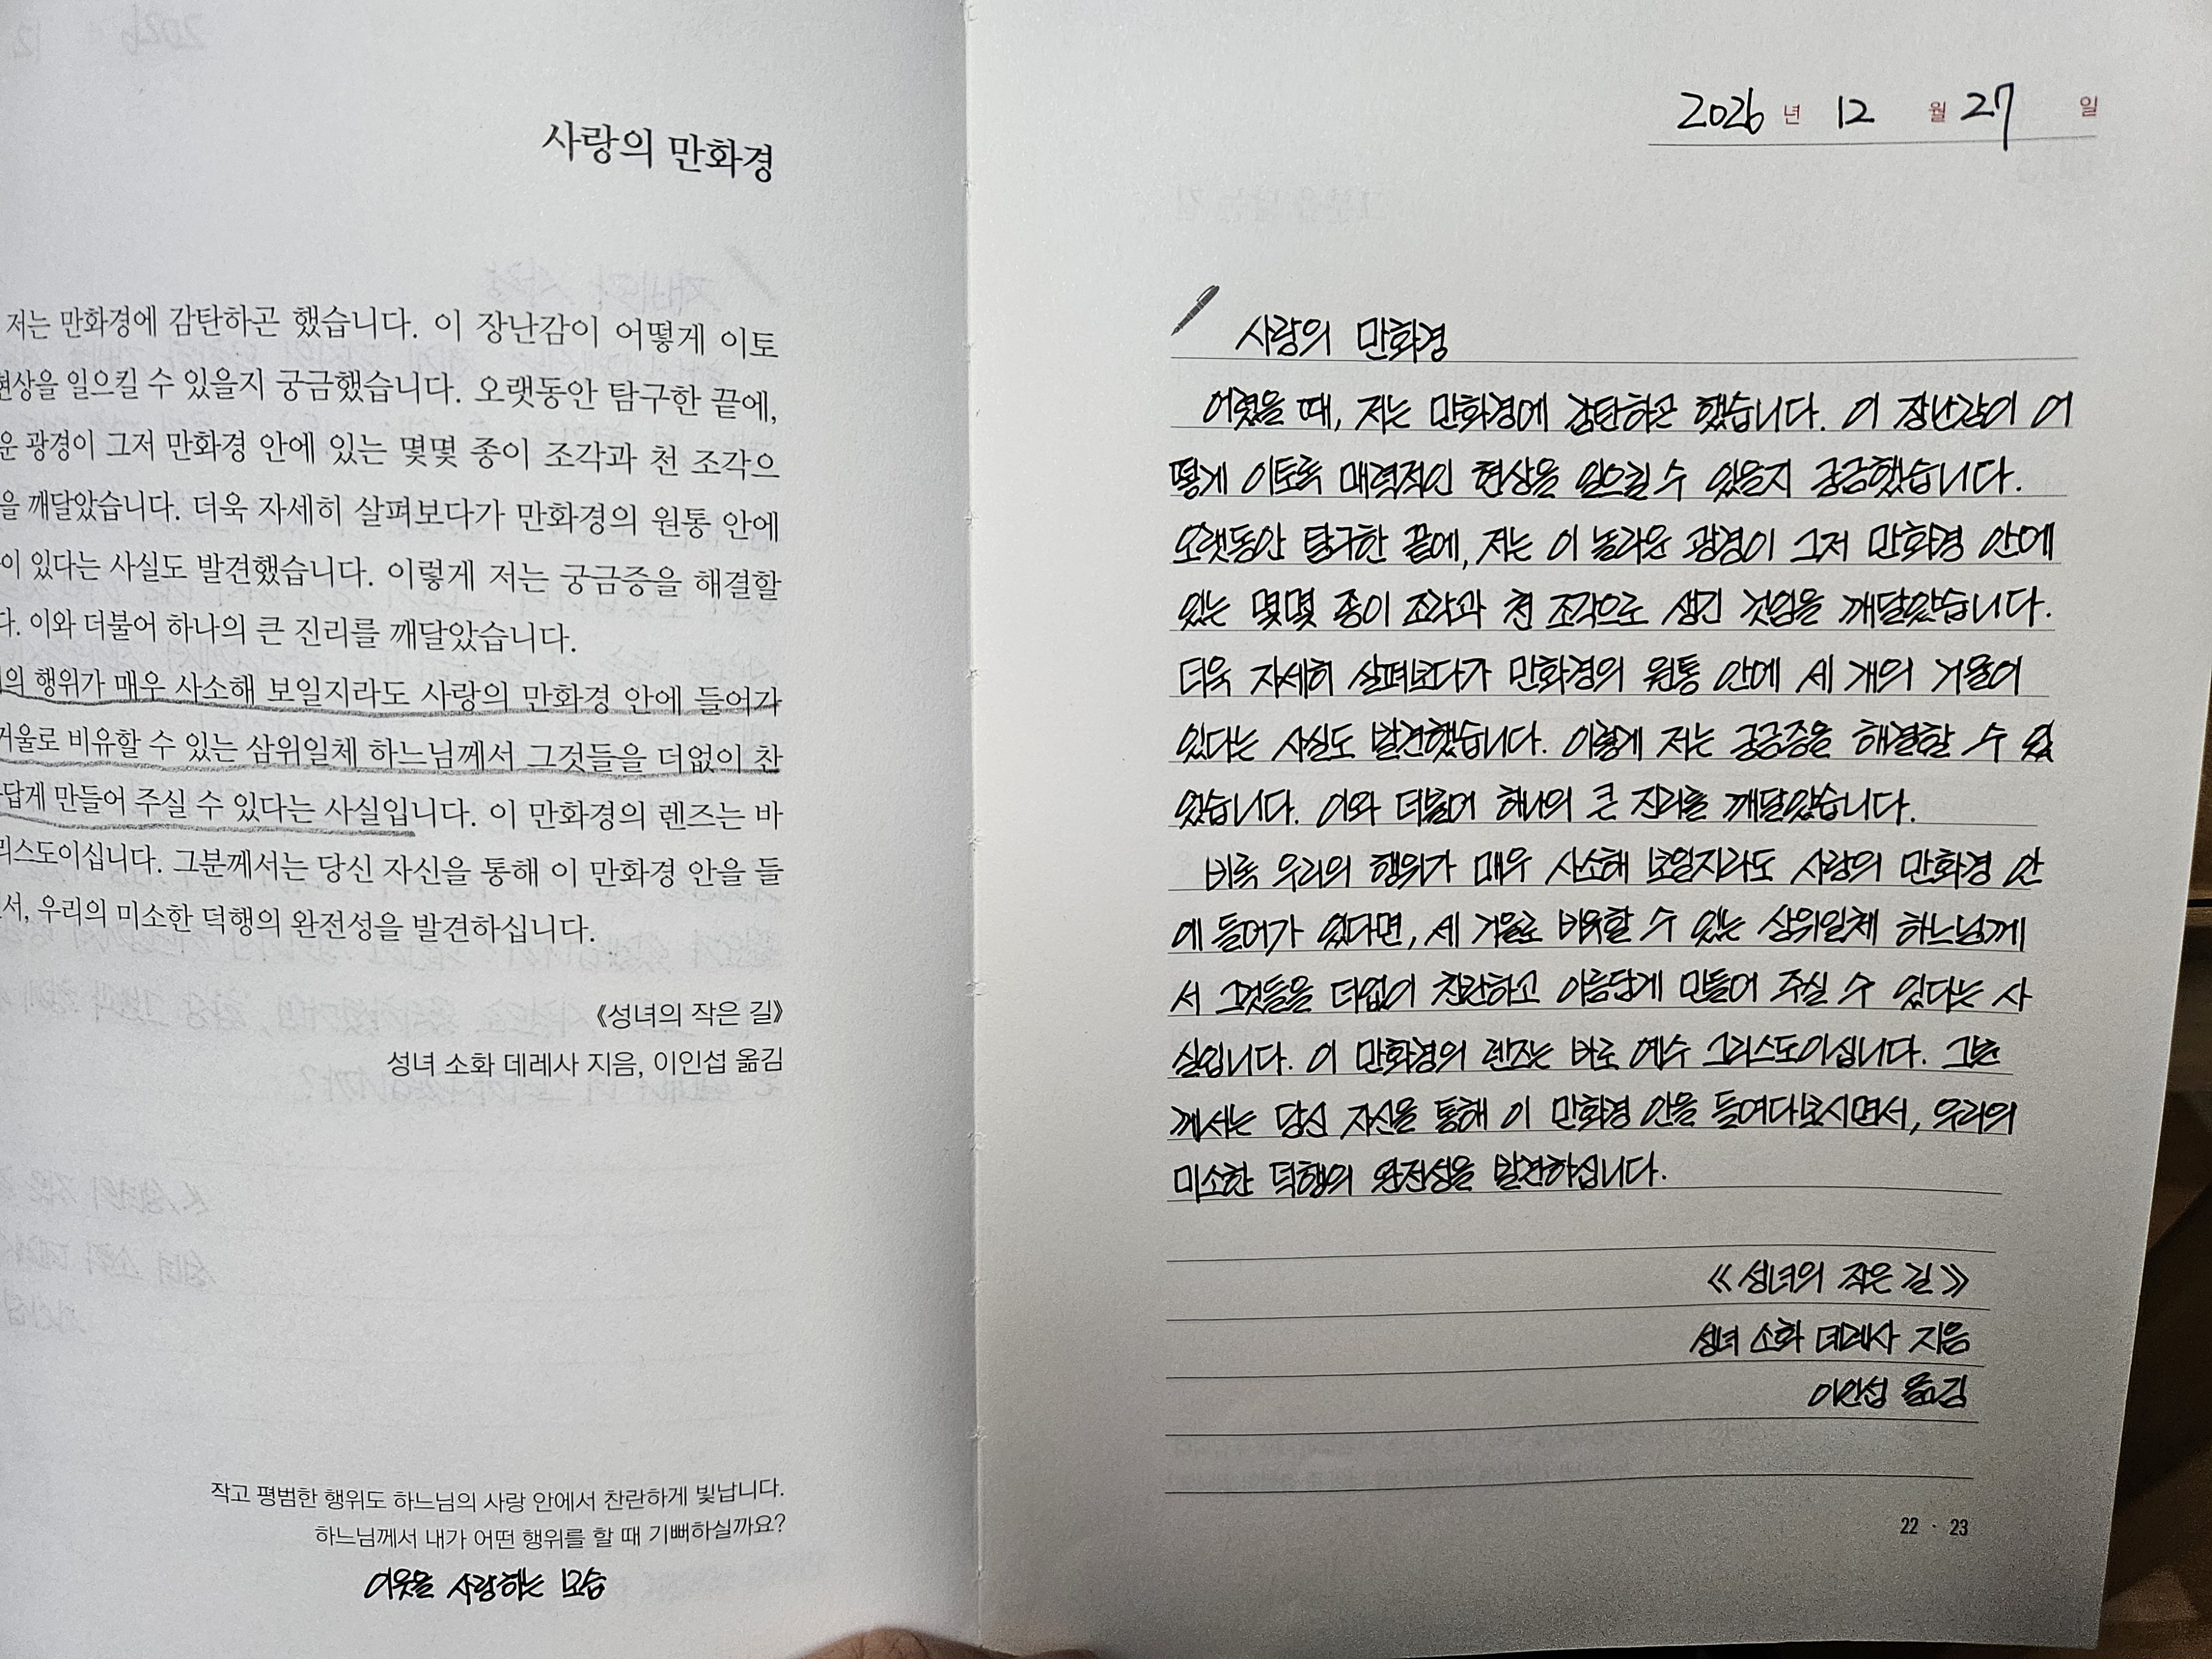 사랑의 만화경
저는 만화경에 감탄하곤 했습니다. 이 장난감이 어떻게 이토
현상을 일으킬 수 있을지 궁금했습니다. 오랫동안 탐구한 끝에,
운 광경이 그저 만화경 안에 있는 몇몇 종이 조각과 천 조각으
을 깨달았습니다. 더욱 자세히 살펴보다가 만화경의 원통 안에
이 있다는 사실도 발견했습니다. 이렇게 저는 궁금증을 해결할
다. 이와 더불어 하나의 큰 진리를 깨달았습니다.
의 행위가 매우 사소해 보일지라도 사랑의 만화경 안에 들어가
거울로 비유할 수 있는 삼위일체 하느님께서 그것들을 더없이 찬
답게 만들어 주실 수 있다는 사실입니다. 이 만화경의 렌즈는 바
리스도이십니다. 그분께서는 당신 자신을 통해 이 만화경 안을 들
서, 우리의 미소한 덕행의 완전성을 발견하십니다.
《성녀의 작은 길》
성녀 소화 데레사 지음, 이인섭 옮김
작고 평범한 행위도 하느님의 사랑 안에서 찬란하게 빛납니다.
하느님께서 내가 어떤 행위를 할 때 기뻐하실까요?
이웃을 사랑하는 모습
2026 년 12 월 27 일
사랑의 만화경
어렸을 때, 저는 만화경에 감탄하곤 했습니다. 이 장난감이 어
떻게 이토록 매력적인 현상을 일으킬 수 있을지 궁금했습니다.
오랫동안 탐구한 끝에, 저는 이 놀라운 광경이 그저 만화경 안에
있는 몇몇 종이 조각과 천 조각으로 생긴 것임을 깨달았습니다.
더욱 자세히 살펴보다가 만화경의 원통 안에 세 개의 거울이
있다는 사실도 발견했습니다. 이렇게 저는 궁금증을 해결할 수 있
었습니다. 이와 더불어 하나의 큰 진리를 깨달았습니다.
비록 우리의 행위가 매우 사소해 보일지라도 사랑의 만화경 안
에 들어가 있다면, 세 거울로 비유할 수 있는 삼위일체 하느님께
서 그것들을 더없이 찬란하고 아름답게 만들어 주실 수 있다는 사
실입니다. 이 만화경의 렌즈는 바로 예수 그리스도이십니다. 그분
께서는 당신 자신을 통해 이 만화경 안을 들여다보시면서, 우리의
미소한 덕행의 완전성을 발견하십니다.
《성녀의 작은 길》
성녀 소화 데레사 지음
이인섭 옮김
22 · 23